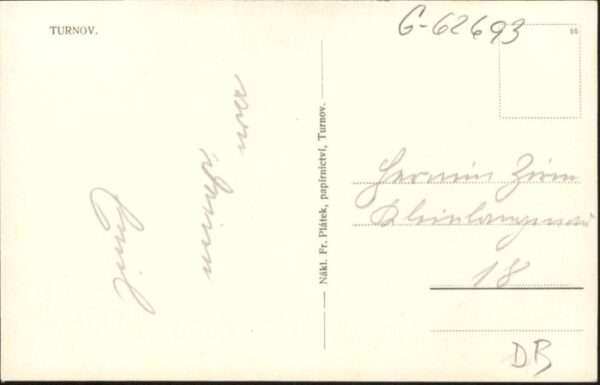 TURNOV.
G-62693
55
Nákl. Fr. Plátek, papírnictví, Turnov.
von
Emil
Hermin Zirm
Kleinlangenau
18
DB